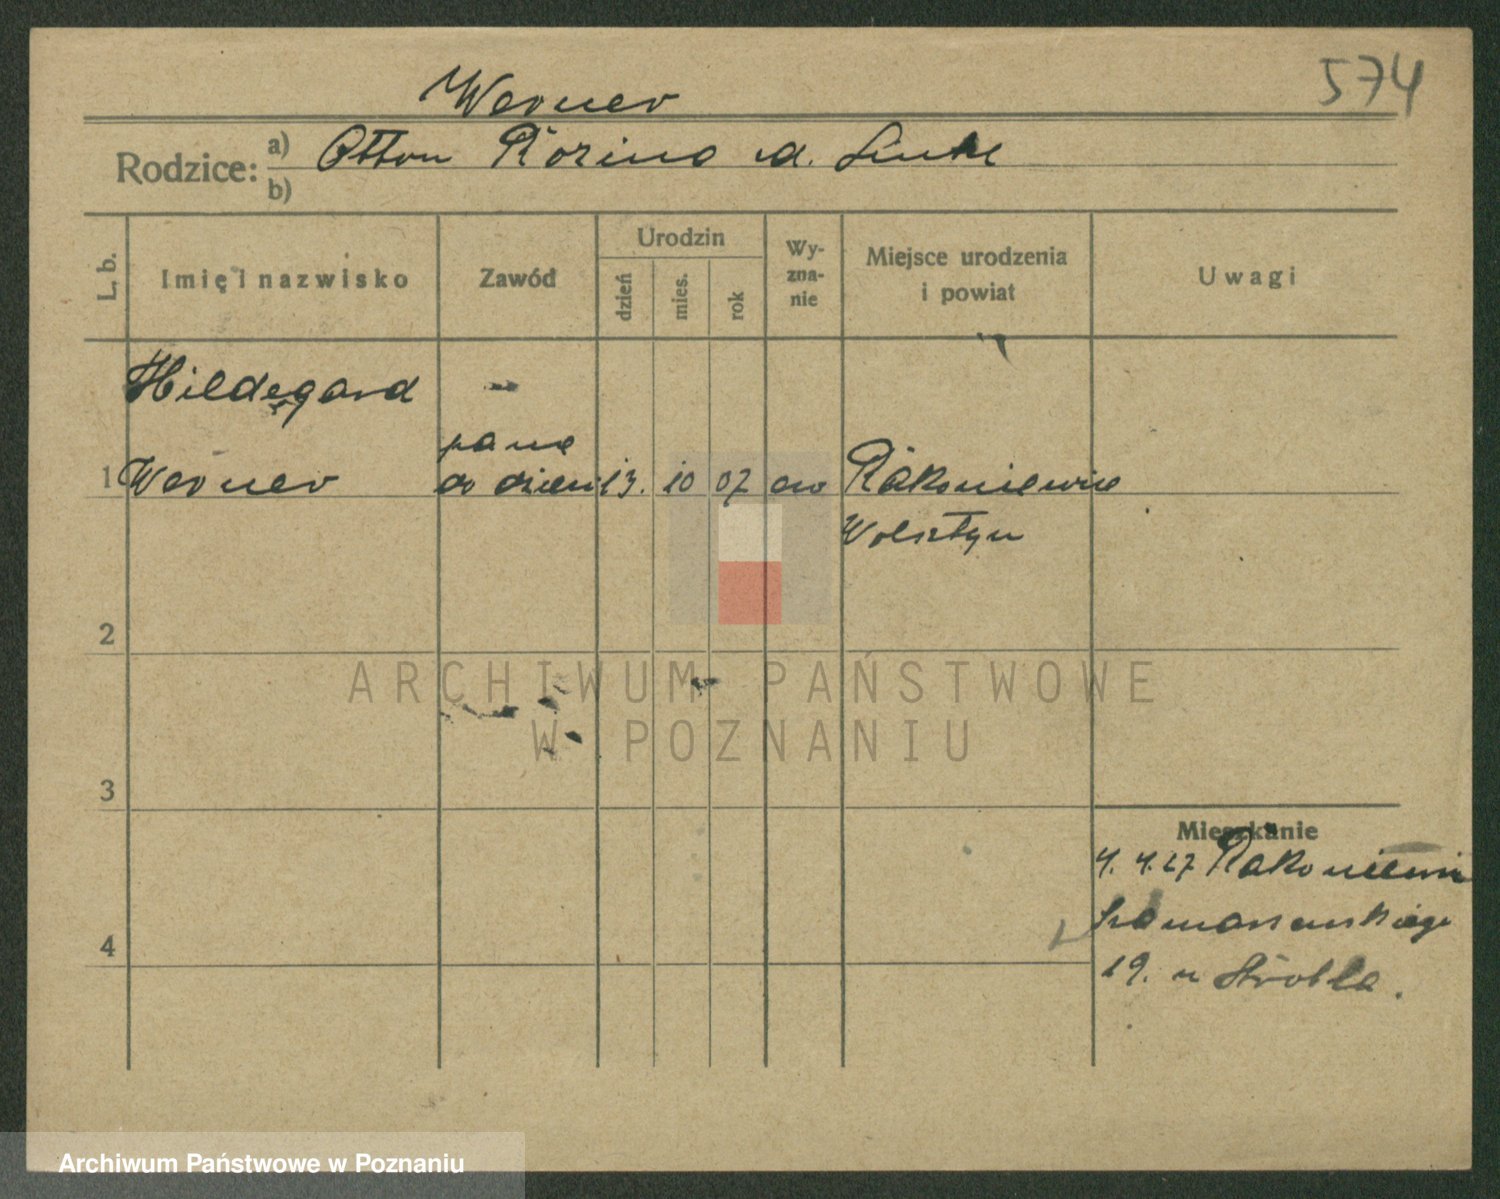 574
Werner
Rodzice: a) Otton Rozina d. Linke
b)
L. b. Imię i nazwisko Zawód Urodzin dzień mies. rok Wyznanie Miejsce urodzenia i powiat Uwagi
Hildegard
panna
1 Werner do dzieci 13. 10 07 ew Rakoniewice
Wolsztyn
2
ARCHIWUM PAŃSTWOWE
W POZNANIU
3
Mieszkanie
4. 4.27 Rakoniewice
4
19. u Ströbla.
Archiwum Państwowe w Poznaniu